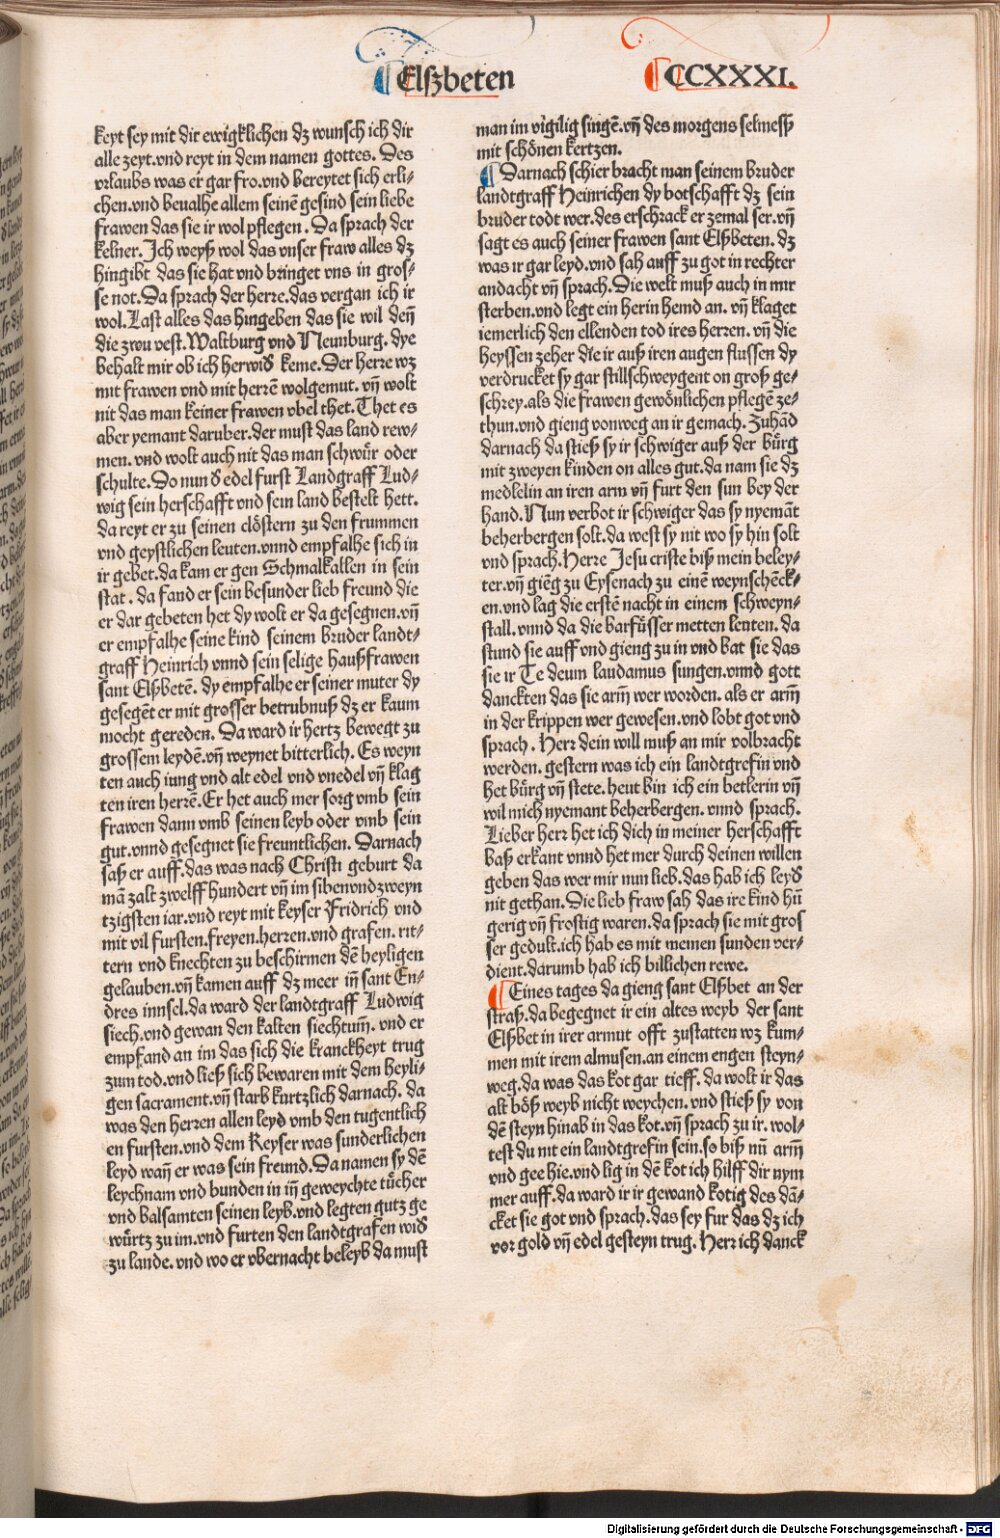 Elßbeten
CCXXXI.
keyt sey mit dir ewigklichen dz wunsch ich dir
alle zeyt.vnd reyt in dem namen gottes. Des
vrlaubs was er gar fro.vnd bereytet sich erli-
chen.vnd beualhe allem seinē gesind sein liebe
frawen das sie ir wol pflegen. Da sprach der
kelner. Ich weyß wol das vnser fraw alles dz
hingibt das sie hat vnd bringet vns in gros-
se not. Da sprach der herre.das vergan ich ir
wol.Last alles das hingeben das sie wil deñ
die zwu vest.Waltburg vnd Neunburg. dye
behalt mir ob ich herwiď keme.Der herre wz
mit frawen vnd mit herrē wolgemut. vñ wolt
nit das man keiner frawen vbel thet.Thet es
aber yemant daruber.der must das land rew-
men. vnd wolt auch nit das man schwůr oder
schulte. Do nun ď edel furst Landgraff Lud-
wig sein herschafft vnd sein land bestelt hett.
da reyt er zu seinen clöstern zu den frummen
vnd geystlichen leuten.vnnd empfalhe sich in
ir gebet.da kam er gen Schmalkallen in sein
stat. da fand er sein besunder lieb freund die
er dar gebeten het dy wolt er da gesegnen.vñ
er empfalhe seine kind seinem bruder landt-
graff Heinrich vnnd sein selige haußfrawen
sant Elßbetē. dy empfalhe er seiner muter dy
gesegēt er mit grosser betrubnuß dz er kaum
mocht gereden. Da ward ir hertz bewegt zu
grossem leydē.vñ weynet bitterlich. Es weyn
ten auch iung vnd alt edel vnd vnedel vñ klag
ten iren herrē.Er het auch mer sorg vmb sein
frawen dann vmb seinen leyb oder vmb sein
gut.vnnd gesegnet sie freuntlichen. Darnach
saß er auff.das was nach Christi geburt da
mā zalt zwelff hundert vñ im sibenvndzweyn
tzigsten iar.vnd reyt mit keyser Fridrich vnd
mit vil fursten.freyen.herren.vnd grafen. rit-
tern vnd knechten zu beschirmen dē heyligen
gelauben.vñ kamen auff dz meer iñ sant En-
dres innsel.da ward der landtgraff Ludwig
siech.vnd gewan den kalten siechtum̄. vnd er
empfand an im das sich die kranckheyt trug
zum tod.vnd ließ sich bewaren mit dem heyli-
gen sacrament.vñ starb kurtzlich darnach. da
was den herren allen leyd vmb den tugentlich
en fursten.vnd dem Keyser was sunderlichen
leyd wañ er was sein freund.Da namen sy dē
leychnam vnd bunden in iñ geweychte tůcher
vnd balsamten seinen leyb.vnd legten gutz ge
würtz zu im.vnd furten den landtgrafen wiď
zu lande. vnd wo er vbernacht beleyb da must
man im vigilig singē.vñ des morgens selmess
mit schönen kertzen.
Darnach schier bracht man seinem bruder
landtgraff Heinrichen dy botschafft dz sein
bruder todt wer.des erschrack er zemal ser.vñ
sagt es auch seiner frawen sant Elßbeten. dz
was ir gar leyd.vnd sah auff zu got in rechter
andacht vñ sprach. Die welt muß auch in mir
sterben.vnd legt ein herin hemd an. vñ klaget
iemerlich den ellenden tod ires herzen. vñ die
heyssen zeher die ir auß iren augen flussen dy
verdrucket sy gar stillschweygent on groß ge-
schrey.als die frawen gewönlichen pflegē ze-
thun.vnd gieng vonweg an ir gemach. Zuhād
darnach da stieß sy ir schwiger auß der bůrg
mit zweyen kinden on alles gut.da nam sie dz
medlelin an iren arm vñ furt den sun bey der
hand.Nun verbot ir schwiger das sy nyemāt
beherbergen solt.da west sy nit wo sy hin solt
vnd sprach.Herre Jesu criste biß mein beley-
ter.vñ giēg zu Eysenach zu einē weynschēck-
en.vnd lag die erstē nacht in einem schweyn-
stall.vnnd da die barfüsser metten leuten. da
stund sie auff vnd gieng zu in vnd bat sie das
sie ir Te deum laudamus sungen.vnnd gott
danckten das sie arm̄ wer worden. als er arm̄
in der krippen wer gewesen.vnd lobt got vnd
sprach. Herr dein will muß an mir volbracht
werden. gestern was ich ein landtgrefin vnd
het bůrg vñ stete. heut bin ich ein betlerin vñ
wil mich nyemant beherbergen. vnnd sprach.
Lieber herr het ich dich in meiner herschafft
baß erkant vnnd het mer durch deinen willen
geben das wer mir nun lieb.das hab ich leyď
nit gethan. Die lieb fraw sah das ire kind hū
gerig vñ frostig waren.da sprach sie mit gros
ser gedult.ich hab es mit meinen sunden ver-
dient.darumb hab ich billichen rewe.
Eines tages da gieng sant Elßbet an der
straß.da begegnet ir ein altes weyb der sant
Elßbet in irer armut offt zustatten wz kum-
men mit irem almusen.an einem engen steyn-
weg.da was das kot gar tieff. da wolt ir das
alt böß weyb nicht weychen. vnd stieß sy von
dē steyn hinab in das kot.vñ sprach zu ir. wol-
test du nit ein landtgrefin sein.so biß nū arm̄
vnd gee hie.vnd lig in dē kot ich hilff dir nym
mer auff.da ward ir ir gewand kotig des dā-
cket sie got vnd sprach.das sey fur das dz ich
vor gold vñ edel gesteyn trug. Herr ich danck
Digitalisierung gefördert durch die Deutsche Forschungsgemeinschaft - DFG